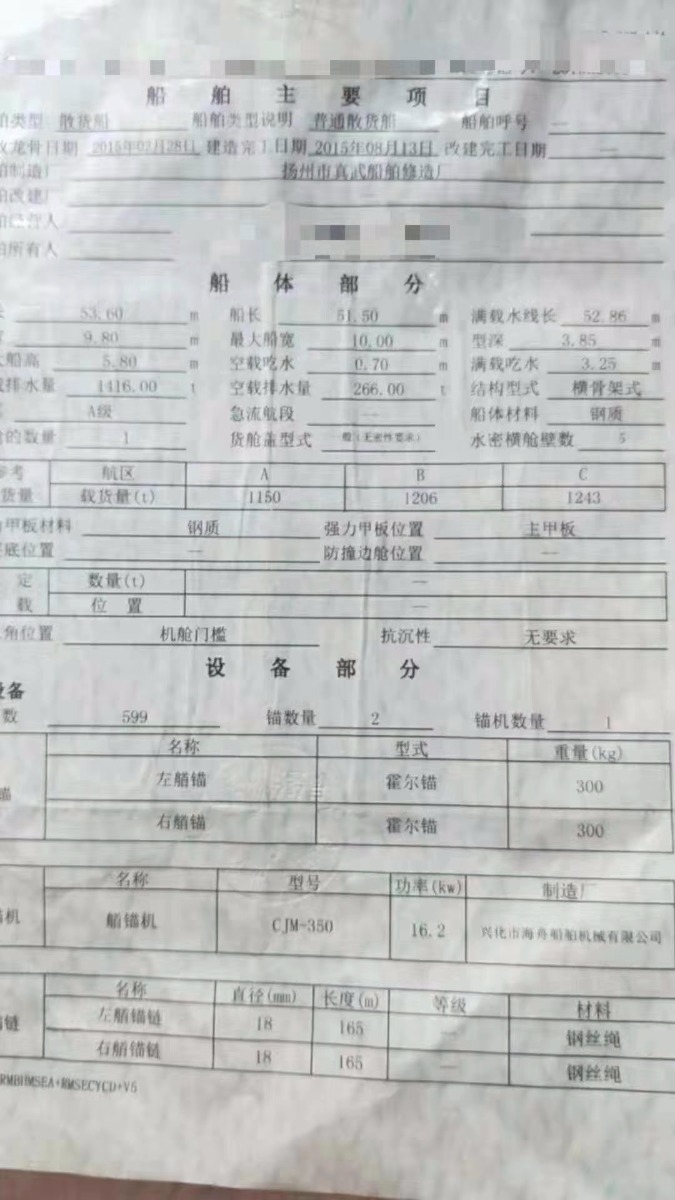 船舶主要项目
舶类型 散货船 船舶类型说明 普通散货船 船舶呼号 —
龙骨日期 2015年02月28日 建造完工日期 2015年08月13日 改建完工日期 —
舶制造厂 扬州市真武船舶修造厂
舶改建厂 —
经营人
舶所有人
船体部分
53.60 m 船长 51.50 m 满载水线长 52.86 m
9.80 m 最大船宽 10.00 m 型深 3.85 m
船高 5.80 m 空载吃水 0.70 m 满载吃水 3.25 m
排水量 1416.00 t 空载排水量 266.00 t 结构型式 横骨架式
A级 急流航段 — 船体材料 钢质
的数量 1 货舱盖型式 (无密性要求) 水密横舱壁数 5
参考 航区 A B C
货量 载货量(t) 1150 1206 1243
甲板材料 钢质 强力甲板位置 主甲板
底位置 — 防撞边舱位置 —
定 数量(t) —
载 位置 —
角位置 机舱门槛 抗沉性 无要求
设备部分
设备
数 599 锚数量 2 锚机数量 1
名称 型式 重量(kg)
锚
左艏锚 霍尔锚 300
右艏锚 霍尔锚 300
名称 型号 功率(kw) 制造厂
机 艏锚机 CJM-350 16.2 兴化市海舟船舶机械有限公司
名称 直径(mm) 长度(m) 等级 材料
链
左艏锚链 18 165 — 钢丝绳
右艏锚链 18 165 — 钢丝绳
RMBHMSEA+RMSECYCD+V5